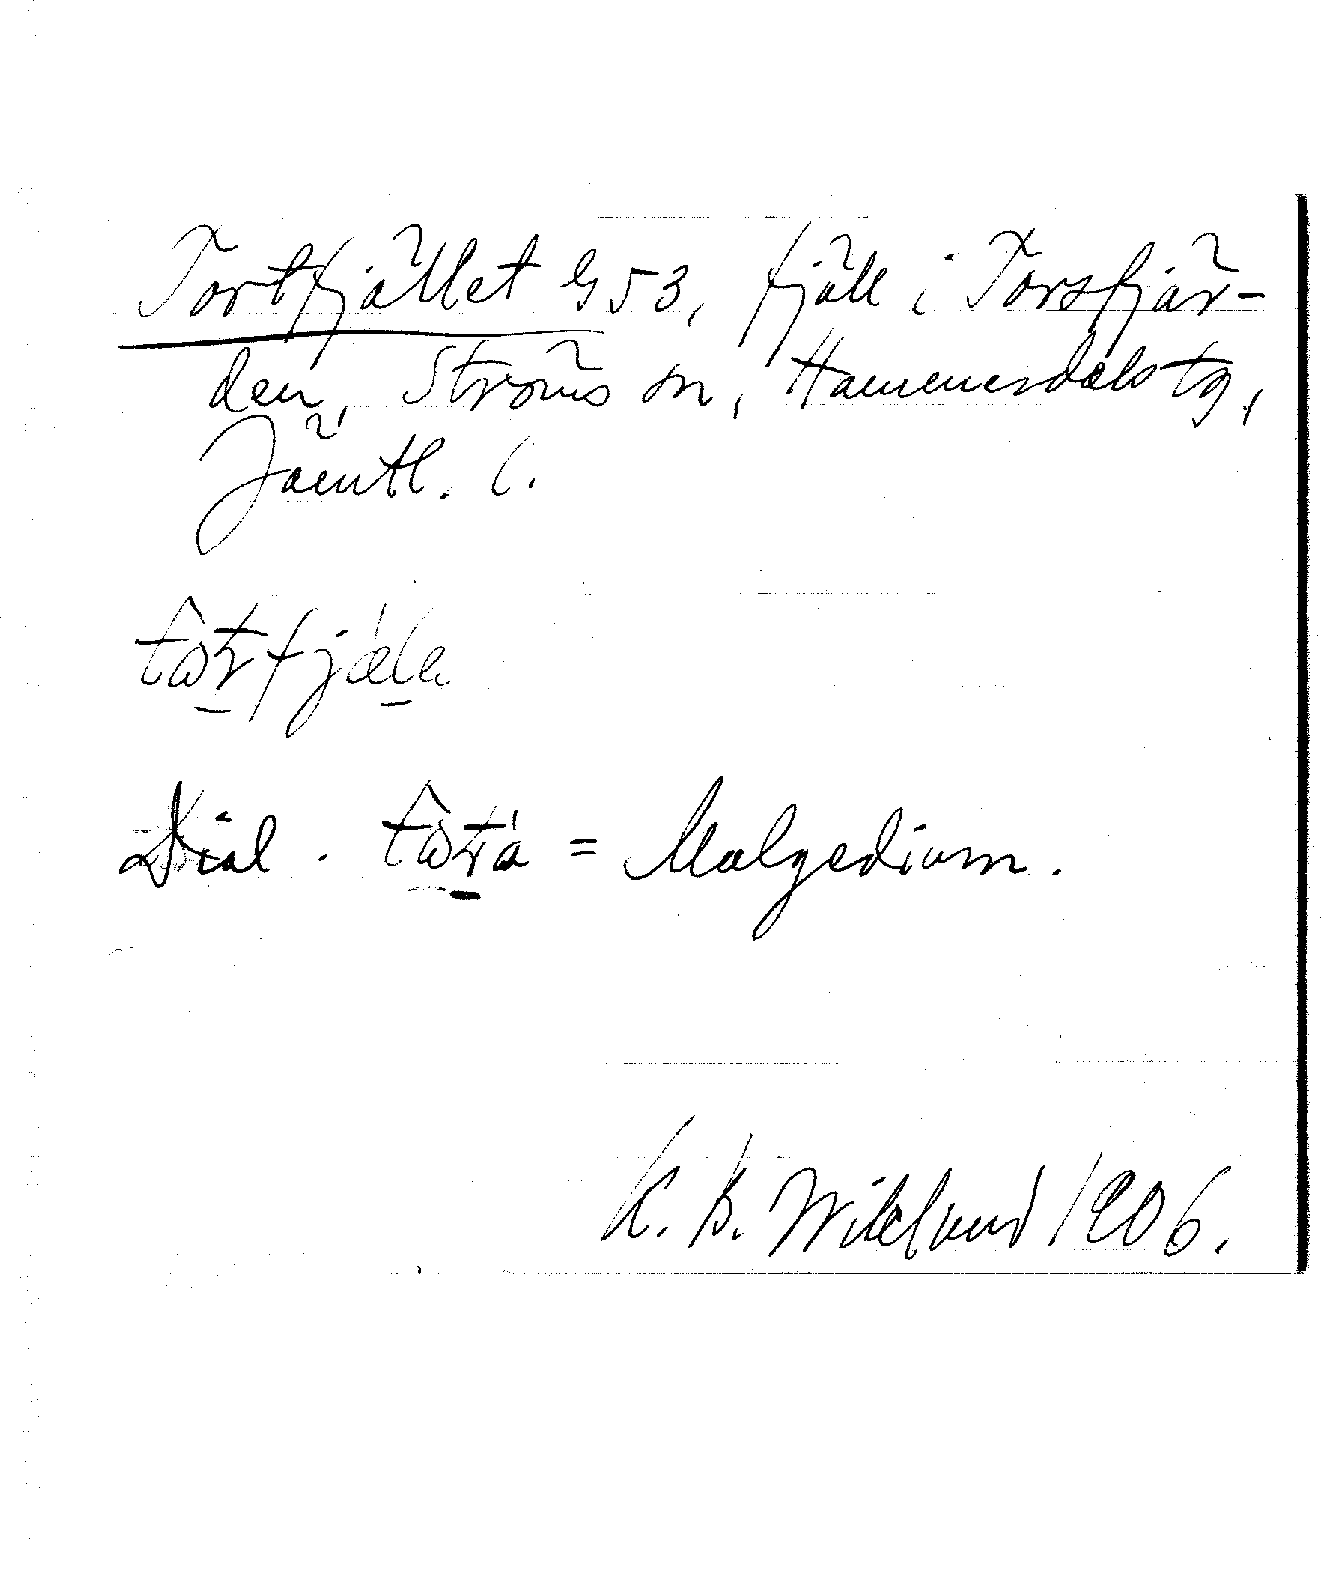 Tortfjället G53, fjäll i Torsfjär-
den, Ströms sn, Hammerdals tg,
Jämtl. l.
Dial. = Mulgedium.
K. B. Wiklund 1906.